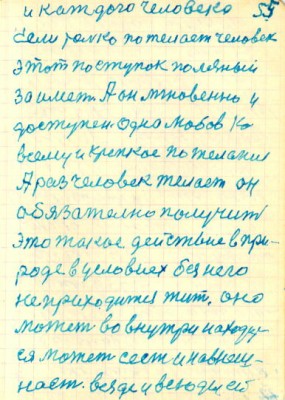 и каждого человека 55
если толко пожелает человек
этот поступок полявый
займет. А он мгновенно и
доступен. Одна любов ко
всему и крепкое пожелания
А раз человек желает он
обязателно получит
это такое действие в при-
роде в условиях без него
не приходится жит, оно
может во внутри находи-
ся может сести и навнеш-
наст. везде и всюду ей